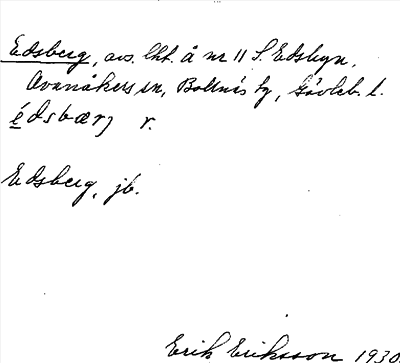 Edsberg, avs. lht. å nr 11 S. Edsbyn,
Ovanåkers sn, Bollnäs tg, Gävleb. l.
édsbærj r.
Edsberg, jb.
Erik Eriksson 1930.